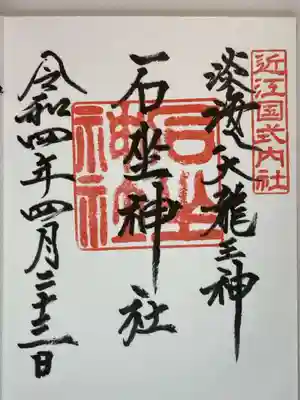 近江国式内社
淡海大龍王神
石坐神社
石坐神社
令和四年四月二十三日